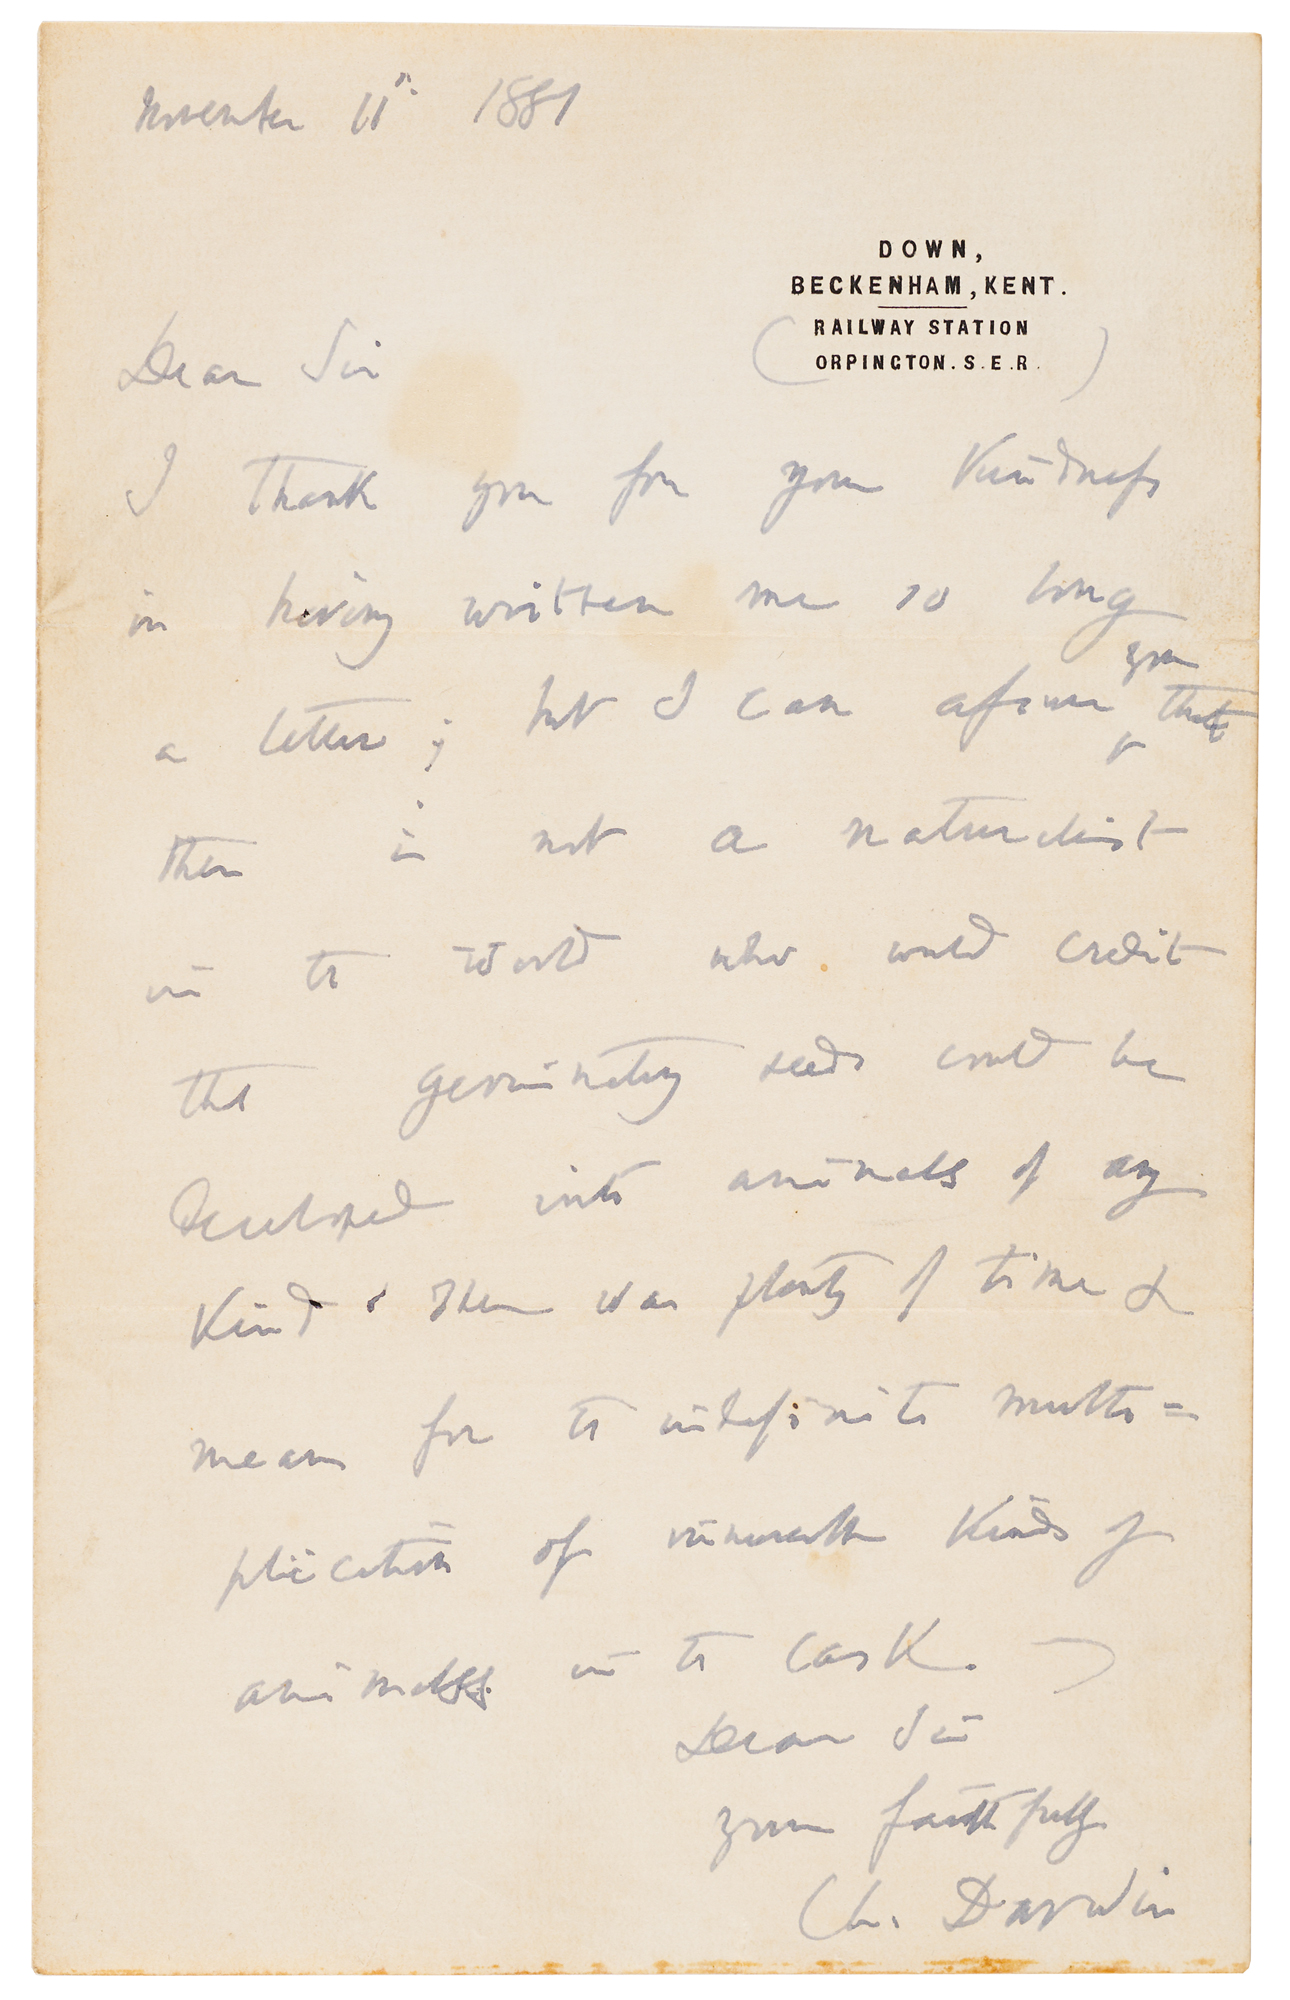 November 11th. 1881
DOWN,
BECKENHAM, KENT.
(RAILWAY STATION
ORPINGTON. S.E.R.)
Dear Sir
I thank you for your kindness
in having written me so long
a letter; but I can assure you that
there is not a naturalist
in the world who would credit
that germinating seeds could be
developed into animals of any
kind. There was plenty of time &
means for the indefinite multi=
plication of minute kinds of
animals in the cask. —
Dear Sir
yours faithfully
Ch. Darwin